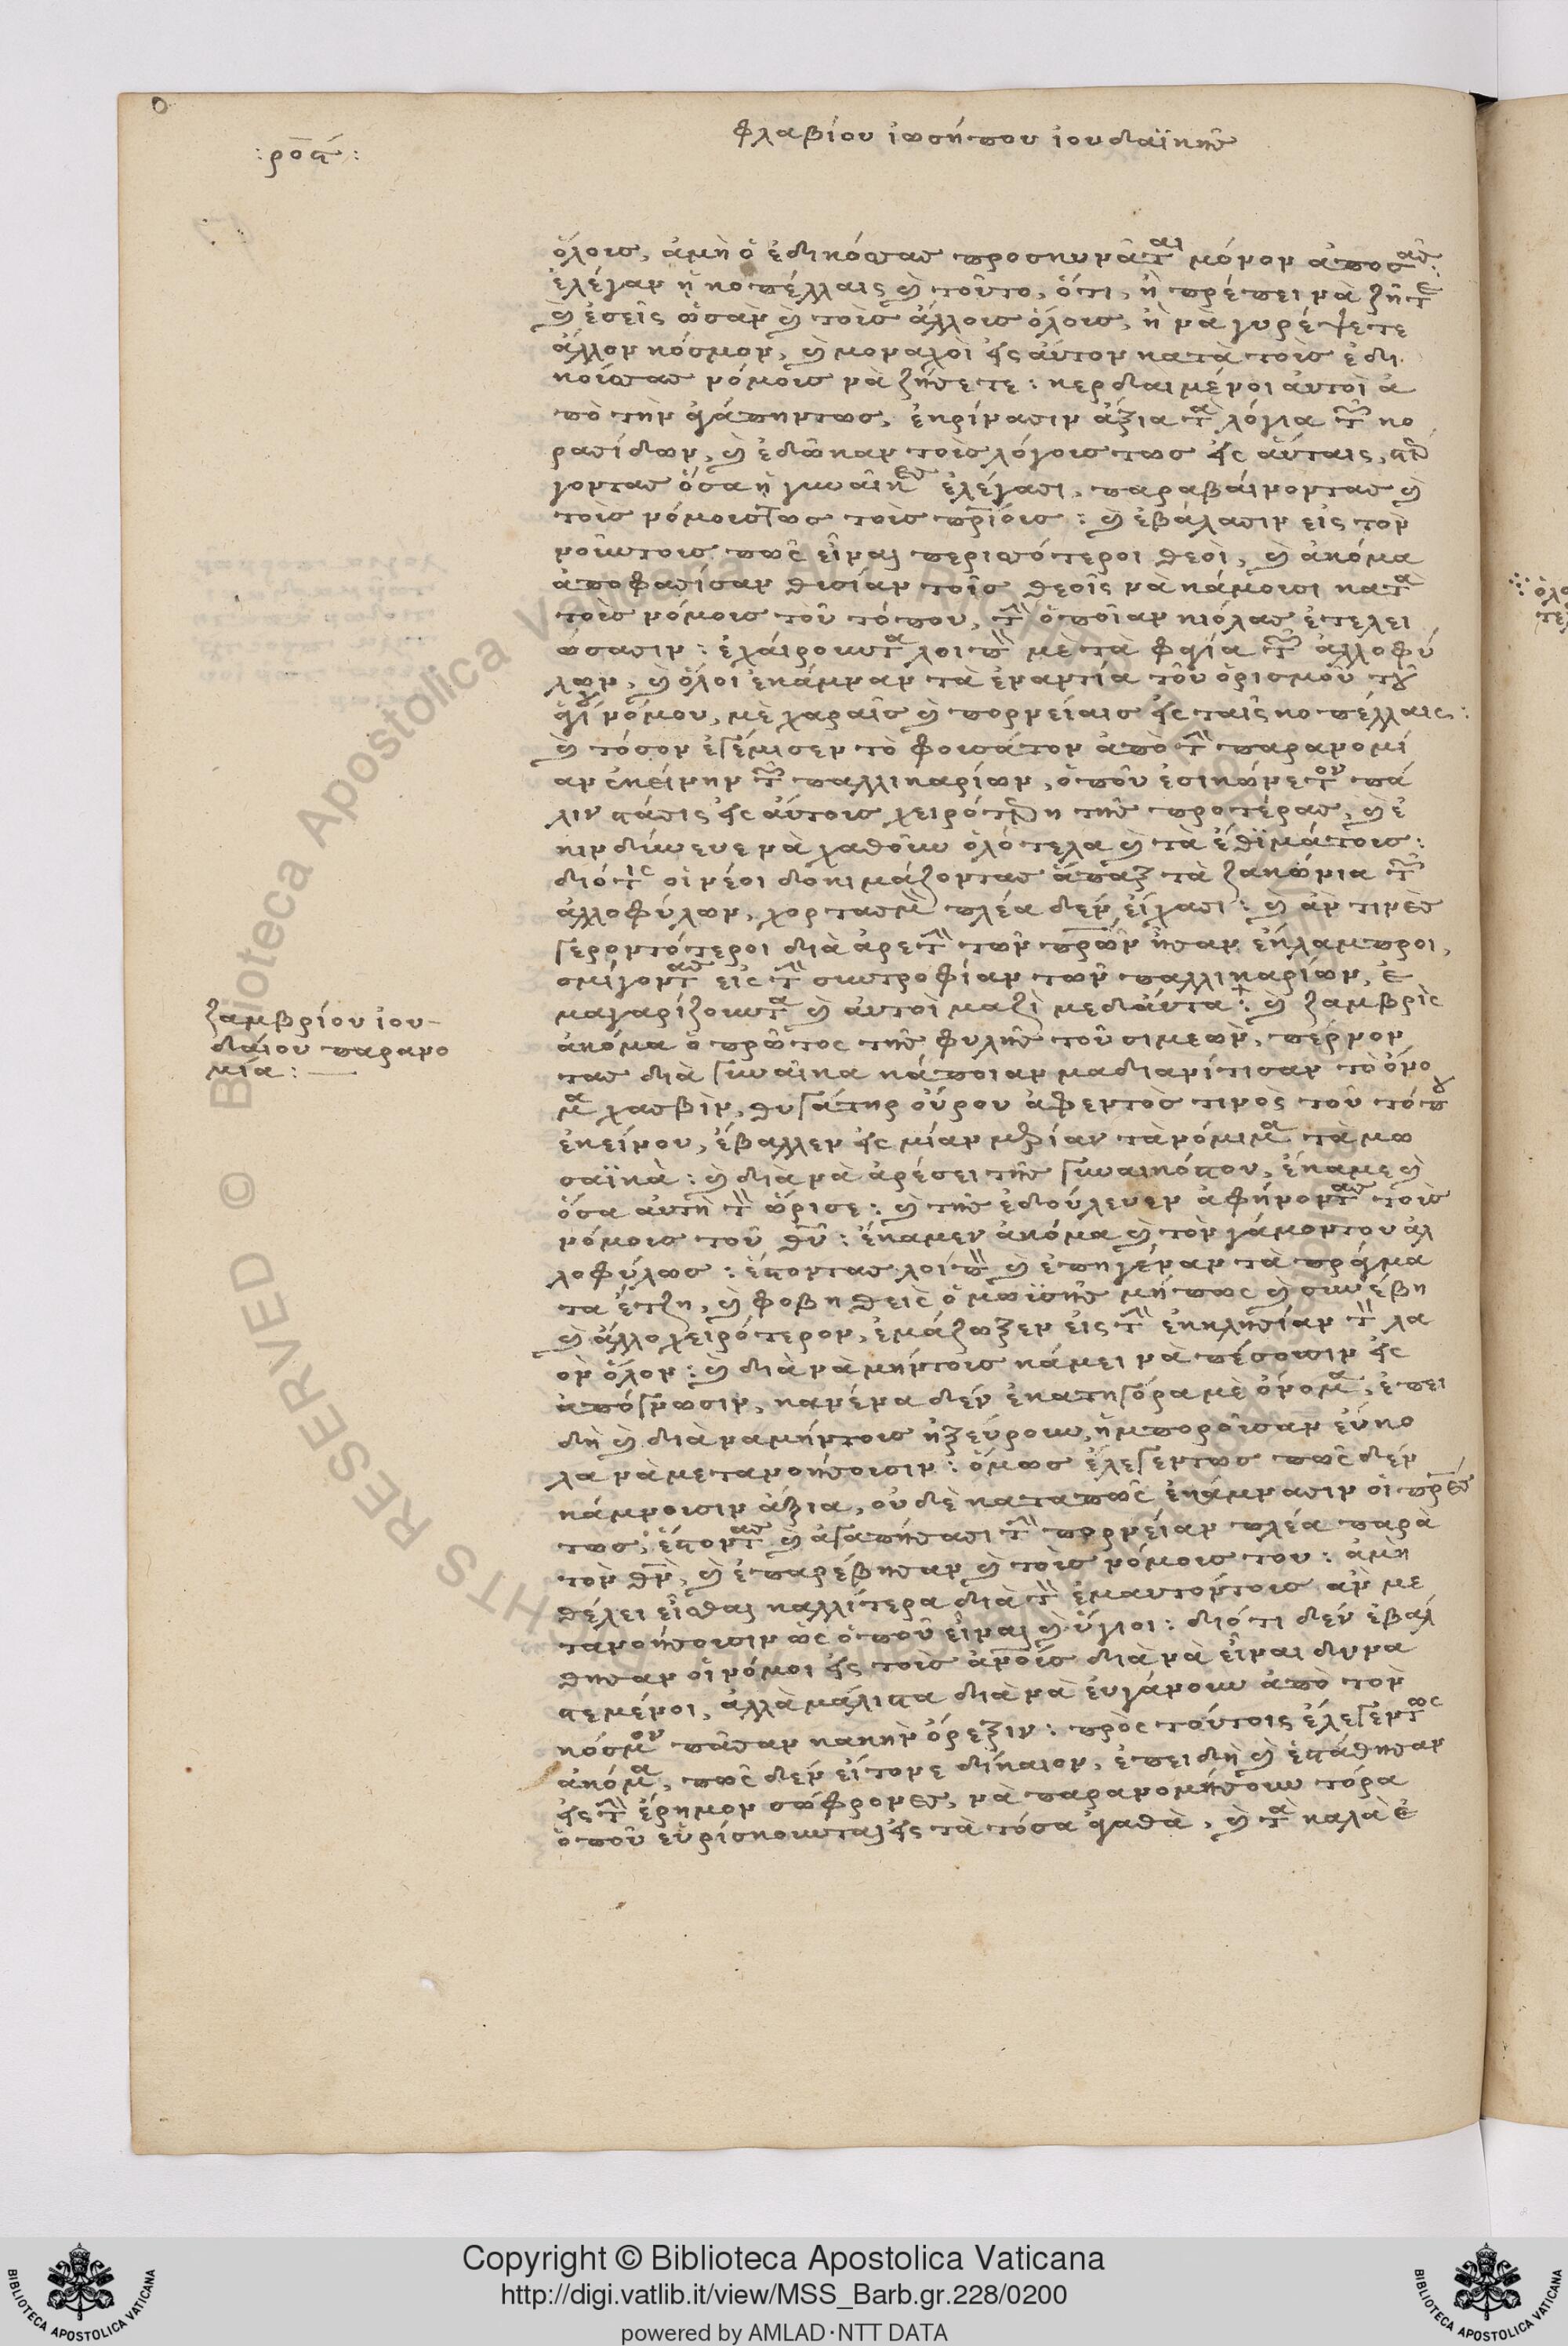 :ροα:
φλαβίου ἰωσήπου ἰουδαϊκῆς
ὅλοις, ἀμὴ ὁ ἐδικόσας προσκυνᾶται μόνον ἀπὸ σᾶς:
ἐλέγαν ἡ κοπέλλαις καὶ τοῦτο, ὅτι, ἢ πρέπει νὰ ζῆτε
καὶ ἐσεῖς ὡσὰν καὶ τοὶς ἄλλοις ὅλοις, ἢ νὰ γυρέψετε
ἄλλον κόσμον, καὶ μοναχοὶ εἰς αὐτον κατὰ τοὶς ἐδι
κοίσας νόμοις νὰ ζήσετε: κερδαιμένοι αὐτοὶ ἀ
πὸ τὴν ἀγάπηντως, ἐκρίνασιν ἄξια τὰ λόγια τῶν κο
ρασίδων, καὶ ἐδῶκαν τοὶς λόγοις τως εἰς αὔταις, στέρ
γοντας ὅσα ἡ γυναῖκες ἐλέγασι, παραβάινοντας καὶ
τοὶς νόμοις τως τοὶς πατρίοις: καὶ ἐβάλασιν εἰς τὸν
νοῦντοις πῶς εἶναι περισσότεροι θεοὶ, καὶ ἀκόμα
ἀποφασίσαν θισίαν τοῖς θεοῖς νὰ κάμοισι κατὰ
τοὶς νόμοις τοῦ τόπου, τὴν ὁποῖαν κιόλας ἐτελει
ώσασιν: ἐχάιρουντα λοιπὸν μὲ τὰ φαγία τῶν ἀλλοφύ
λων, καὶ ὅλοι ἐκάμναν τὰ ἐναντία τοῦ ὁρισμοῦ τοῦ
ἁγίου νόμου, μὲ χαραῖς καὶ πορνείαις εἰς ταῖς κοπέλλαις:
καὶ τόσον ἐγέμισεν τὸ φουσάτον ἀπὸ τὴν παρανομί
αν ἐκείνην τῶν παλλικαρίων, ὁποῦ ἐσικώνετον πά
λιν στάσις εἰς αὐτοις χειρότερη τῆς προτέρας, καὶ ἐ
κινδύνευε νὰ χαθοῦν ὁλότελα καὶ τὰ ἐθϊμάτοις:
διότις οἱ νέοι δοκιμάζοντας ἅπαξ τὰ ζακώνια τῶν
ἀλλοφύλων, χορτασμὸν πλέα δὲν εἴχασι: καὶ ἂν τινὲς
γεροντότεροι διὰ ἀρετὴν τῶν πατέρων ἦσαν ἔκλαμπροι,
σμίγοντας εἰς τὴν συντροφίαν τῶν παλλικαρίων, ἐ
μαγαρίζουντα καὶ αὐτοὶ μαζὶ μεδάυτα: καὶ ζαμβρὶς
ἀκόμα ὁ πρῶτος τῆς φυλῆς τοῦ σιμεὼν, πέρνον
τας διὰ γυναῖκα κάποιαν μαδιανίτισαν τὸ ὄνο
μα χασβὶν, θυγάτηρ οὔρου ἀφεντὸς τινὸς τοῦ τόπου
ἐκείνου, ἔβαλλεν εἰς μίαν μερίαν τὰ νόμιμα τὰ μω
σαϊκὰ: καὶ διὰ νὰ ἀρέσει τῆς γυναικόςτου, ἔκαμε καὶ
ὅσα αὐτὴ τὸν ὥρισε: καὶ τῆς ἐδούλευεν ἀφήνοντας τοὶς
νόμοις τοῦ θεοῦ: ἔκαμεν ἀκόμα καὶ τὸν γάμοντου ἀλ
λοφύλως: ἔστοντας λοίπὸν καὶ ἐπηγέναν τὰ πράγμα
τα ἔτζη, καὶ φοβηθεὶς ὁ μωϋσῆς μήπως καὶ συνέβη
καὶ ἄλλο χειρότερον, ἐμάζωξεν εἰς τὴν ἐκκλησίαν τὸν λα
ὸν ὅλον: καὶ διὰ νὰ μηντοις κάμει νὰ πέσοισιν εἰς
ἀπόγνωσιν, κανένα δὲν ἐκατηγόρα μὲ ὄνομα, ἐπει
δὴ καὶ διὰ ναμήντοις ἠξεύρουν, ἠμποροῖσαν εὔκο
λα νὰ μετανοήσοισιν: ὅμως ἔλεγεντως πῶς δὲν
κάμνοισιν ἄξια, οὐδὲ καταπῶς ἐκάμνασιν οἱ πατέρες
τως, ἔστοντας καὶ ἀγαπήσασι τὴν πορνείαν πλέα παρὰ
τὸν θεὸν, καὶ ἐπαρέβησαν καὶ τοὶς νόμοις του: ἀμὴ
θέλει εἶσθαι καλλίτερα διὰ τὴν ἐμαυτόντοις ἂν με
τανοήσοισιν ὡς ὁποῦ εἶναι καὶ ὑγιοι: διότι δὲν ἐβάλ
θησαν οἱ νόμοι εἰς τοὶς ἀνθρώποις διὰ νὰ εἶναι δυνα
στεμένοι, ἀλλὰ μάλιστα διὰ νὰ ἐυγάνουν ἀπὸ τὸν
κόσμον πᾶσαν κακὴν ὄρεξιν: πρὸς τούτοις ἔλεγεντως
ἀκόμα, πῶς δὲν εἴτονε δίκαιον, ἐπειδὴ καὶ ἐστάθησαν
εἰς τὴν ἔρημον σώφρονες, νὰ παρανομήσουν τόρα
ὁποῦ εὑρίσκουνται εἰς τὰ τόσα ἀγαθὰ, καὶ τὰ καλὰ ἐ
ζαμβρίου ἰου-
δάιου παρανο
μία:
Copyright © Biblioteca Apostolica Vaticana
http://digi.vatlib.it/view/MSS_Barb.gr.228/0200
powered by AMLAD·NTT DATA
BIBLIOTECA APOSTOLICA VATICANA
BIBLIOTECA APOSTOLICA VATICANA